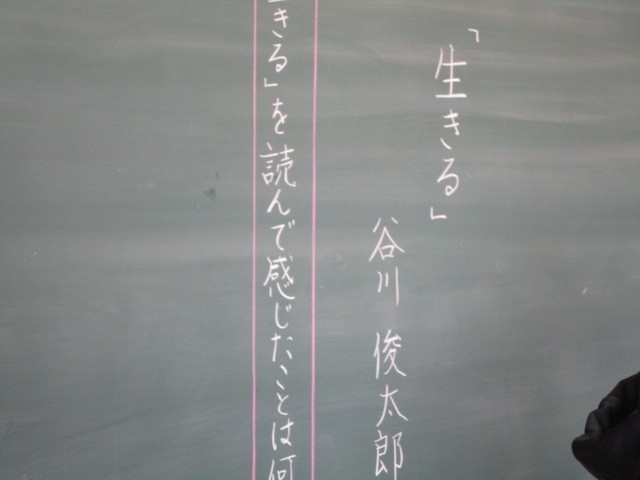 「生きる」
谷川 俊太郎
きる」を読んで感じたことは何